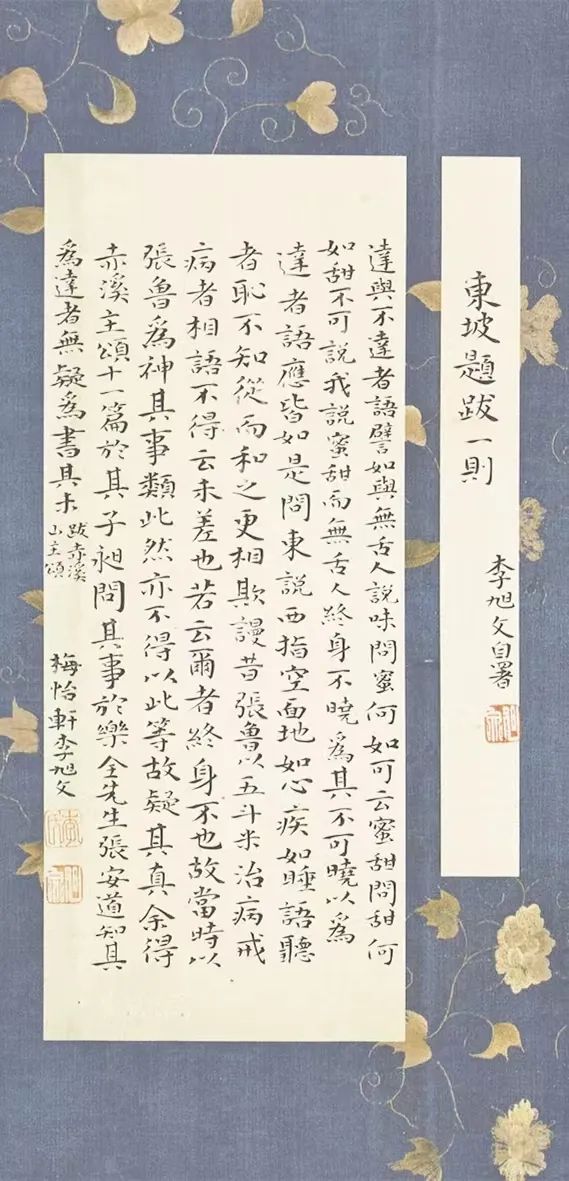 東坡題跋一則
李旭文自署
達與不達者語譬如與無舌人說味問蜜何如可云蜜甜問甜何
如甜不可說我說蜜甜而無舌人終身不曉爲其不可曉以爲
達者語應皆如是問東說西指空地如心疾如睡語聽
者恥不知從而和之更相欺謾昔張魯以五斗米治病戒
病者相語不得云未差也若云爾者終身不也故當時以
張魯爲神其事類此然亦不得以此等故疑其真余得
赤溪主頌十一篇於其子昶問其事於樂全先生張安道知其
爲達者無疑爲書其末
跋赤溪
山主頌
梅怡軒李旭文